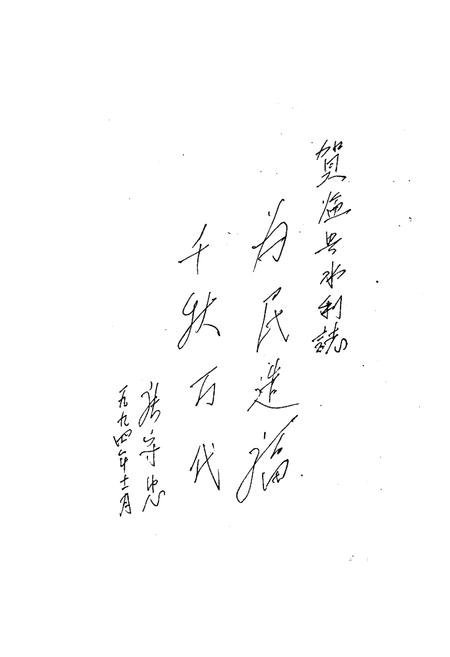 賀县水利誌
为民造福
千秋万代
守忠
一九九四年十二月